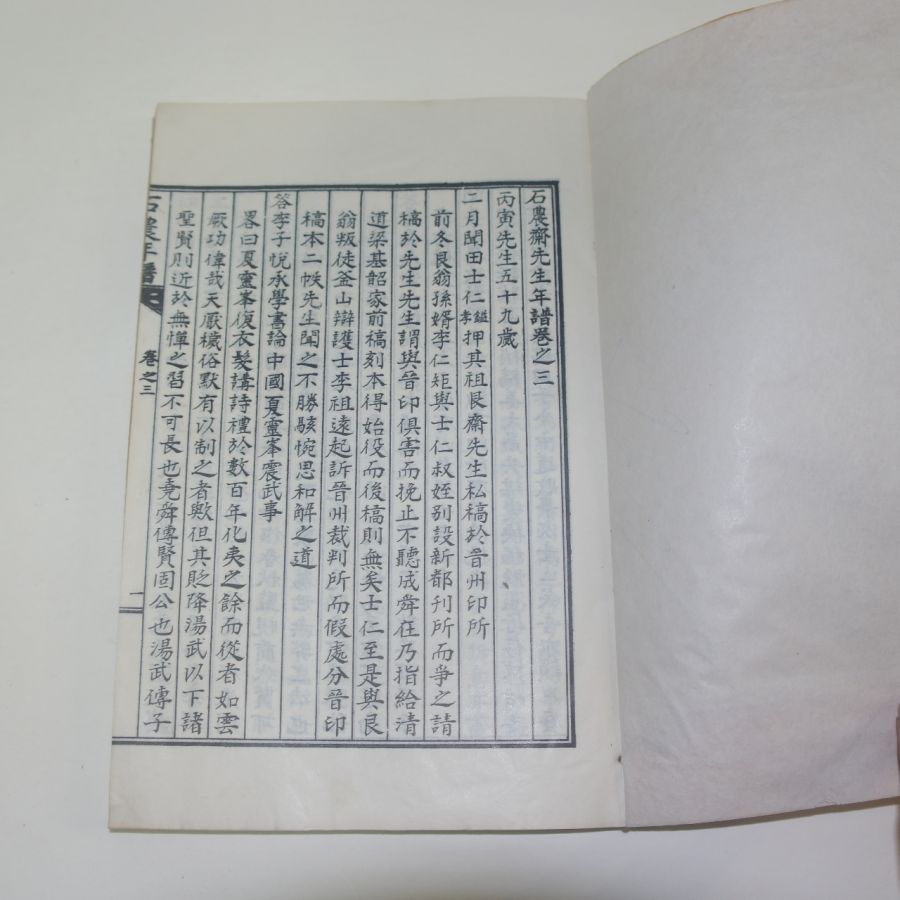 石農齋先生年譜卷之三
丙寅先生五十九歲
二月聞田士仁鎰孝押其祖艮齋先生私稿於晉州印所
前冬艮翁孫婿李仁矩與士仁叔姪別設新都刊所而爭之請
稿於先生先生謂與晉印俱害而挽止不聽成舜在乃指給清
道梁基韶家前稿刻本得始役而後稿則無矣士仁至是與艮
翁叛徒釜山辯護士李祖遠起訴晉州裁判所而假處分晉印
稿本二帙先生聞之不勝駭惋思和解之道
答李子悅承學書論中國夏靈峯震武事
畧曰夏靈峯復衣髮講詩禮於數百年化夷之餘而從者如雲
厥功偉哉天厭穢俗默有以制之者歟但其貶降湯武以下諸
聖賢則近於無憚之習不可長也堯舜傳賢固公也湯武傳子
石農年譜
卷之三
一